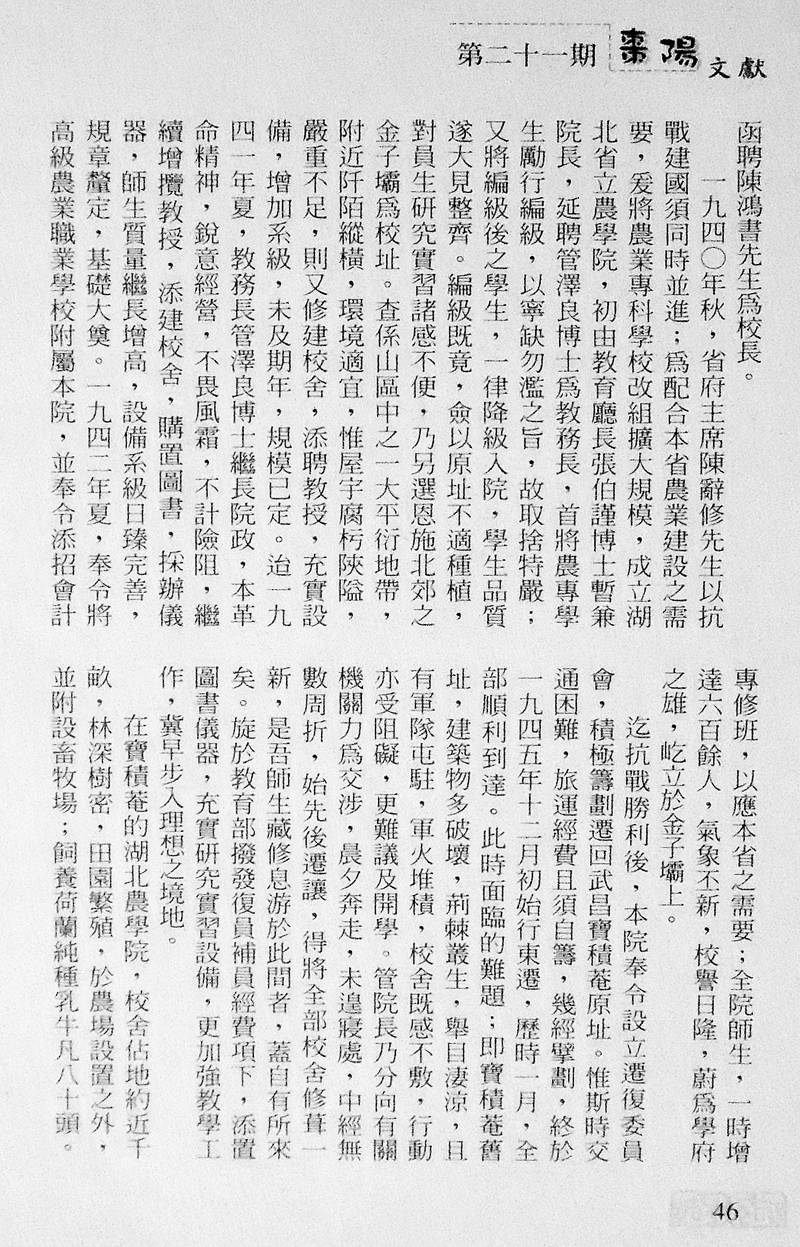 第二十一期 棗陽文獻
函聘陳鴻書先生為校長。
一九四〇年秋，省府主席陳辭修先生以抗
戰建國須同時並進；為配合本省農業建設之需
要，爰將農業專科學校改組擴大規模，成立湖
北省立農學院，初由教育廳長張伯謹博士暫兼
院長，延聘管澤良博士為教務長，首將農專學
生勵行編級，以寧缺勿濫之旨，故取捨特嚴；
又將編級後之學生，一律降級入院，學生品質
遂大見整齊。編級既竟，僉以原址不適種植，
對員生研究實習諸感不便，乃另選恩施北郊之
金子壩為校址。查係山區中之一大平衍地帶，
附近阡陌縱橫，環境適宜，惟屋宇腐朽陝隘，
嚴重不足，則又修建校舍，添聘教授，充實設
備，增加系級，未及期年，規模已定。迨一九
四一年夏，教務長管澤良博士繼長院政，本革
命精神，銳意經營，不畏風霜，不計險阻，繼
續增攬教授，添建校舍，購置圖書，採辦儀
器，師生質量繼長增高，設備系級日臻完善，
規章釐定，基礎大奠。一九四二年夏，奉令將
高級農業職業學校附屬本院，並奉令添招會計
專修班，以應本省之需要；全院師生，一時增
達六百餘人，氣象丕新，校譽日隆，蔚為學府
之雄，屹立於金子壩上。
迄抗戰勝利後，本院奉令設立遷復委員
會，積極籌劃遷回武昌寶積菴原址。惟斯時交
通困難，旅運經費且須自籌，幾經擘劃，終於
一九四五年十二月初始行東遷，歷時一月，全
部順利到達。此時面臨的難題；即寶積菴舊
址，建築物多破壞，荊棘叢生，舉目淒涼，且
有軍隊屯駐，軍火堆積，校舍既感不敷，行動
亦受阻礙，更難議及開學。管院長乃分向有關
機關力為交涉，晨夕奔走，未遑寢處，中經無
數周折，始先後遷讓，得將全部校舍修葺一
新，是吾師生藏修息游於此間者，蓋自有所來
矣。旋於教育部撥發復員補員經費項下，添置
圖書儀器，充實研究實習設備，更加強教學工
作，冀早步入理想之境地。
在寶積菴的湖北農學院，校舍佔地約近千
畝，林深樹密，田園繁殖，於農場設置之外，
並附設畜牧場；飼養荷蘭純種乳牛凡八十頭。
46